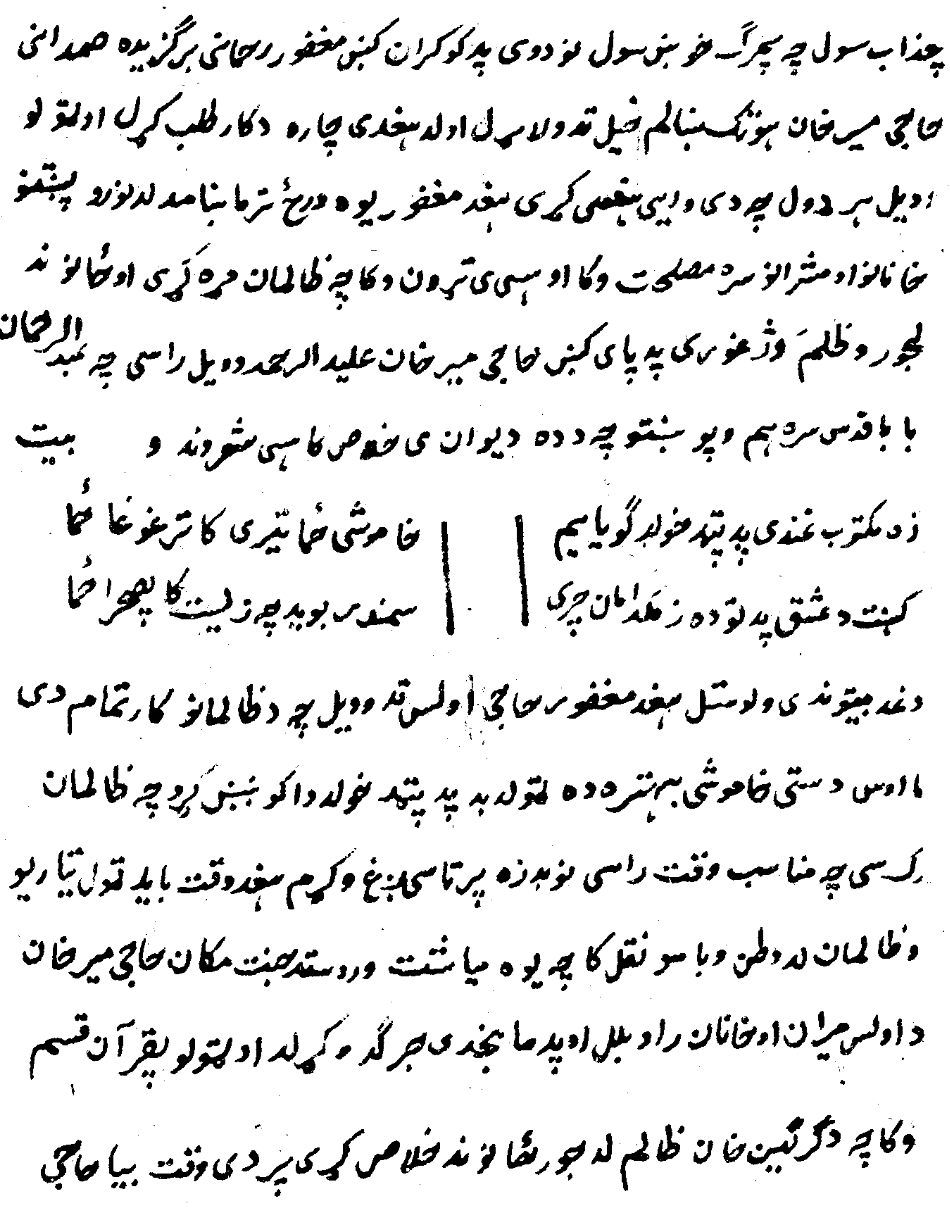 عذاب سول چه سحرګ خوښ سول نو دوی په کوکران کښی مغفور رحمانی برګزیده صمدانی
حاجی میر خان هوتک ښالم خیل ته ورلاړل او له هغه دی چاره د کار طلب کړل او ټولو
اویل هر ډول چه دی وایی هغسی کړی هغه مغفور یوه ورځ تر ماښامه له نورو پښتنو
خانانو او مشرانو سره مصلحت وکا او هسی ی تړون وکا چه ظالمان مړه کړی او ځانونه
له جور و ظلم وژغوری په پای کښی حاجی میر خان علیه الرحمه وویل راسی چه عبدالرحمان
بابا قدس سره هم و پوښتو چه د ده دیوان ی خلاص کا هسی شعرونه و بیت
زه مکتوب غندی په پټه خوله ګویا یم
خاموشی ځما تیری کا تر غوغا ځما
کښت د عشق په توده زمکه امان چری
سمندر بویه چه زیست کا په صحرا ځما
دغه بیتونه ی ولوستل هغه مغفور حاجی اولس ته وویل چه د ظالمانو کار تمام دی
اما اوس دستی خاموشی بهتره ده ټول به په پټه خوله دا کوښښ کړو چه ظالمان
رک سی چه مناسب وقت راسی نو به زه پر تاسی ږغ وکړم هغه وقت باید ټول تیار یو
و ظالمان له وطن وباسو نقل کا چه یوه میاشت وروسته جنت مکان حاجی میر خان
د اولس میران او خانان راوبلل او په مانجه ی جرګه وکړله او ټولو په قرآن قسم
وکا چه د ګرګین خان ظالم له جور ځانونه خلاص کړی پر دی وقت بیا حاجی